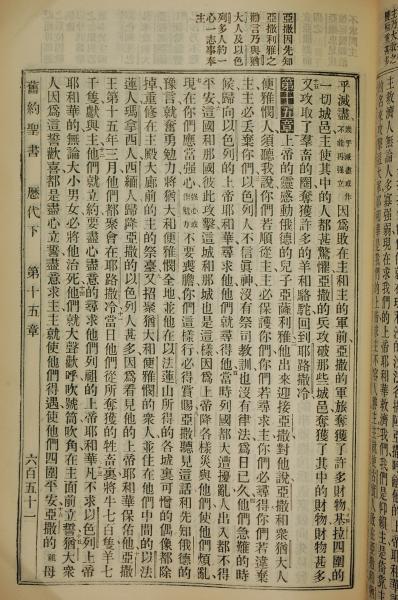 亞撒因先知
亞撒利雅之
勸言乃與猶
大人及以色
列多人約一
心一志事奉
主
乎滅盡 幾乎滅盡或作不能再強立 因爲敗在主和主的軍前亞撒的軍旅奪獲了許多財物基拉四圍的
一切城邑主使其中的人都甚驚懼亞撒的兵攻破那些城邑奪獲了其中的財物財物甚多
又攻取了羣畜的圈奪獲許多的羊和駱駝回到耶路撒冷
第十五章 上帝的靈感動俄德的兒子亞薩利雅他出來迎接亞撒對他說亞撒和衆猶大人
便雅憫人須聽我說你們若順從主主必保護你們你們若尋求主你們必尋得你們若違棄
主主必丟棄你們以色列人不信眞神沒有祭司教訓也沒有律法爲日已久他們急難的時
候歸向以色列的上帝耶和華尋求他他們就尋得他當時列國都大遭擾亂人出入都不得
平安這國和那國彼此攻擊這城和那城也是這樣因爲上帝降各樣災與他們使他們煩亂
現在你們應當強心 不要喪膽你們這樣行必得賞賜亞撒聽見這話和先知俄德的
豫言就奮勇勉力將猶大和便雅憫全地並他在以法蓮山所得的各城裏可憎的偶像都除
掉重修在主殿大廊前的主的祭臺又招聚猶大和便雅憫的衆人並住在他們中間的以法
蓮人瑪拿西人西緬人歸降亞撒的以色列人甚多因爲看見他的上帝耶和華保佑他亞撒
王第十五年三月他們都聚會在耶路撒冷當日他們從所奪獲的牲畜裏將牛七百隻羊七
千隻獻與主他們就立約要盡心盡意的尋求他們列祖的上帝耶和華凡不求以色列上帝
耶和華的無論大小男女必將他治死他們就大聲歡呼吹號筒吹角在主面前立誓猶大衆
人因爲這誓歡喜都是盡心立誓盡意求主主就使他們得遇使他們四圍平安亞撒的 親母
舊約聖書 歷代下 第十五章 六百五十一